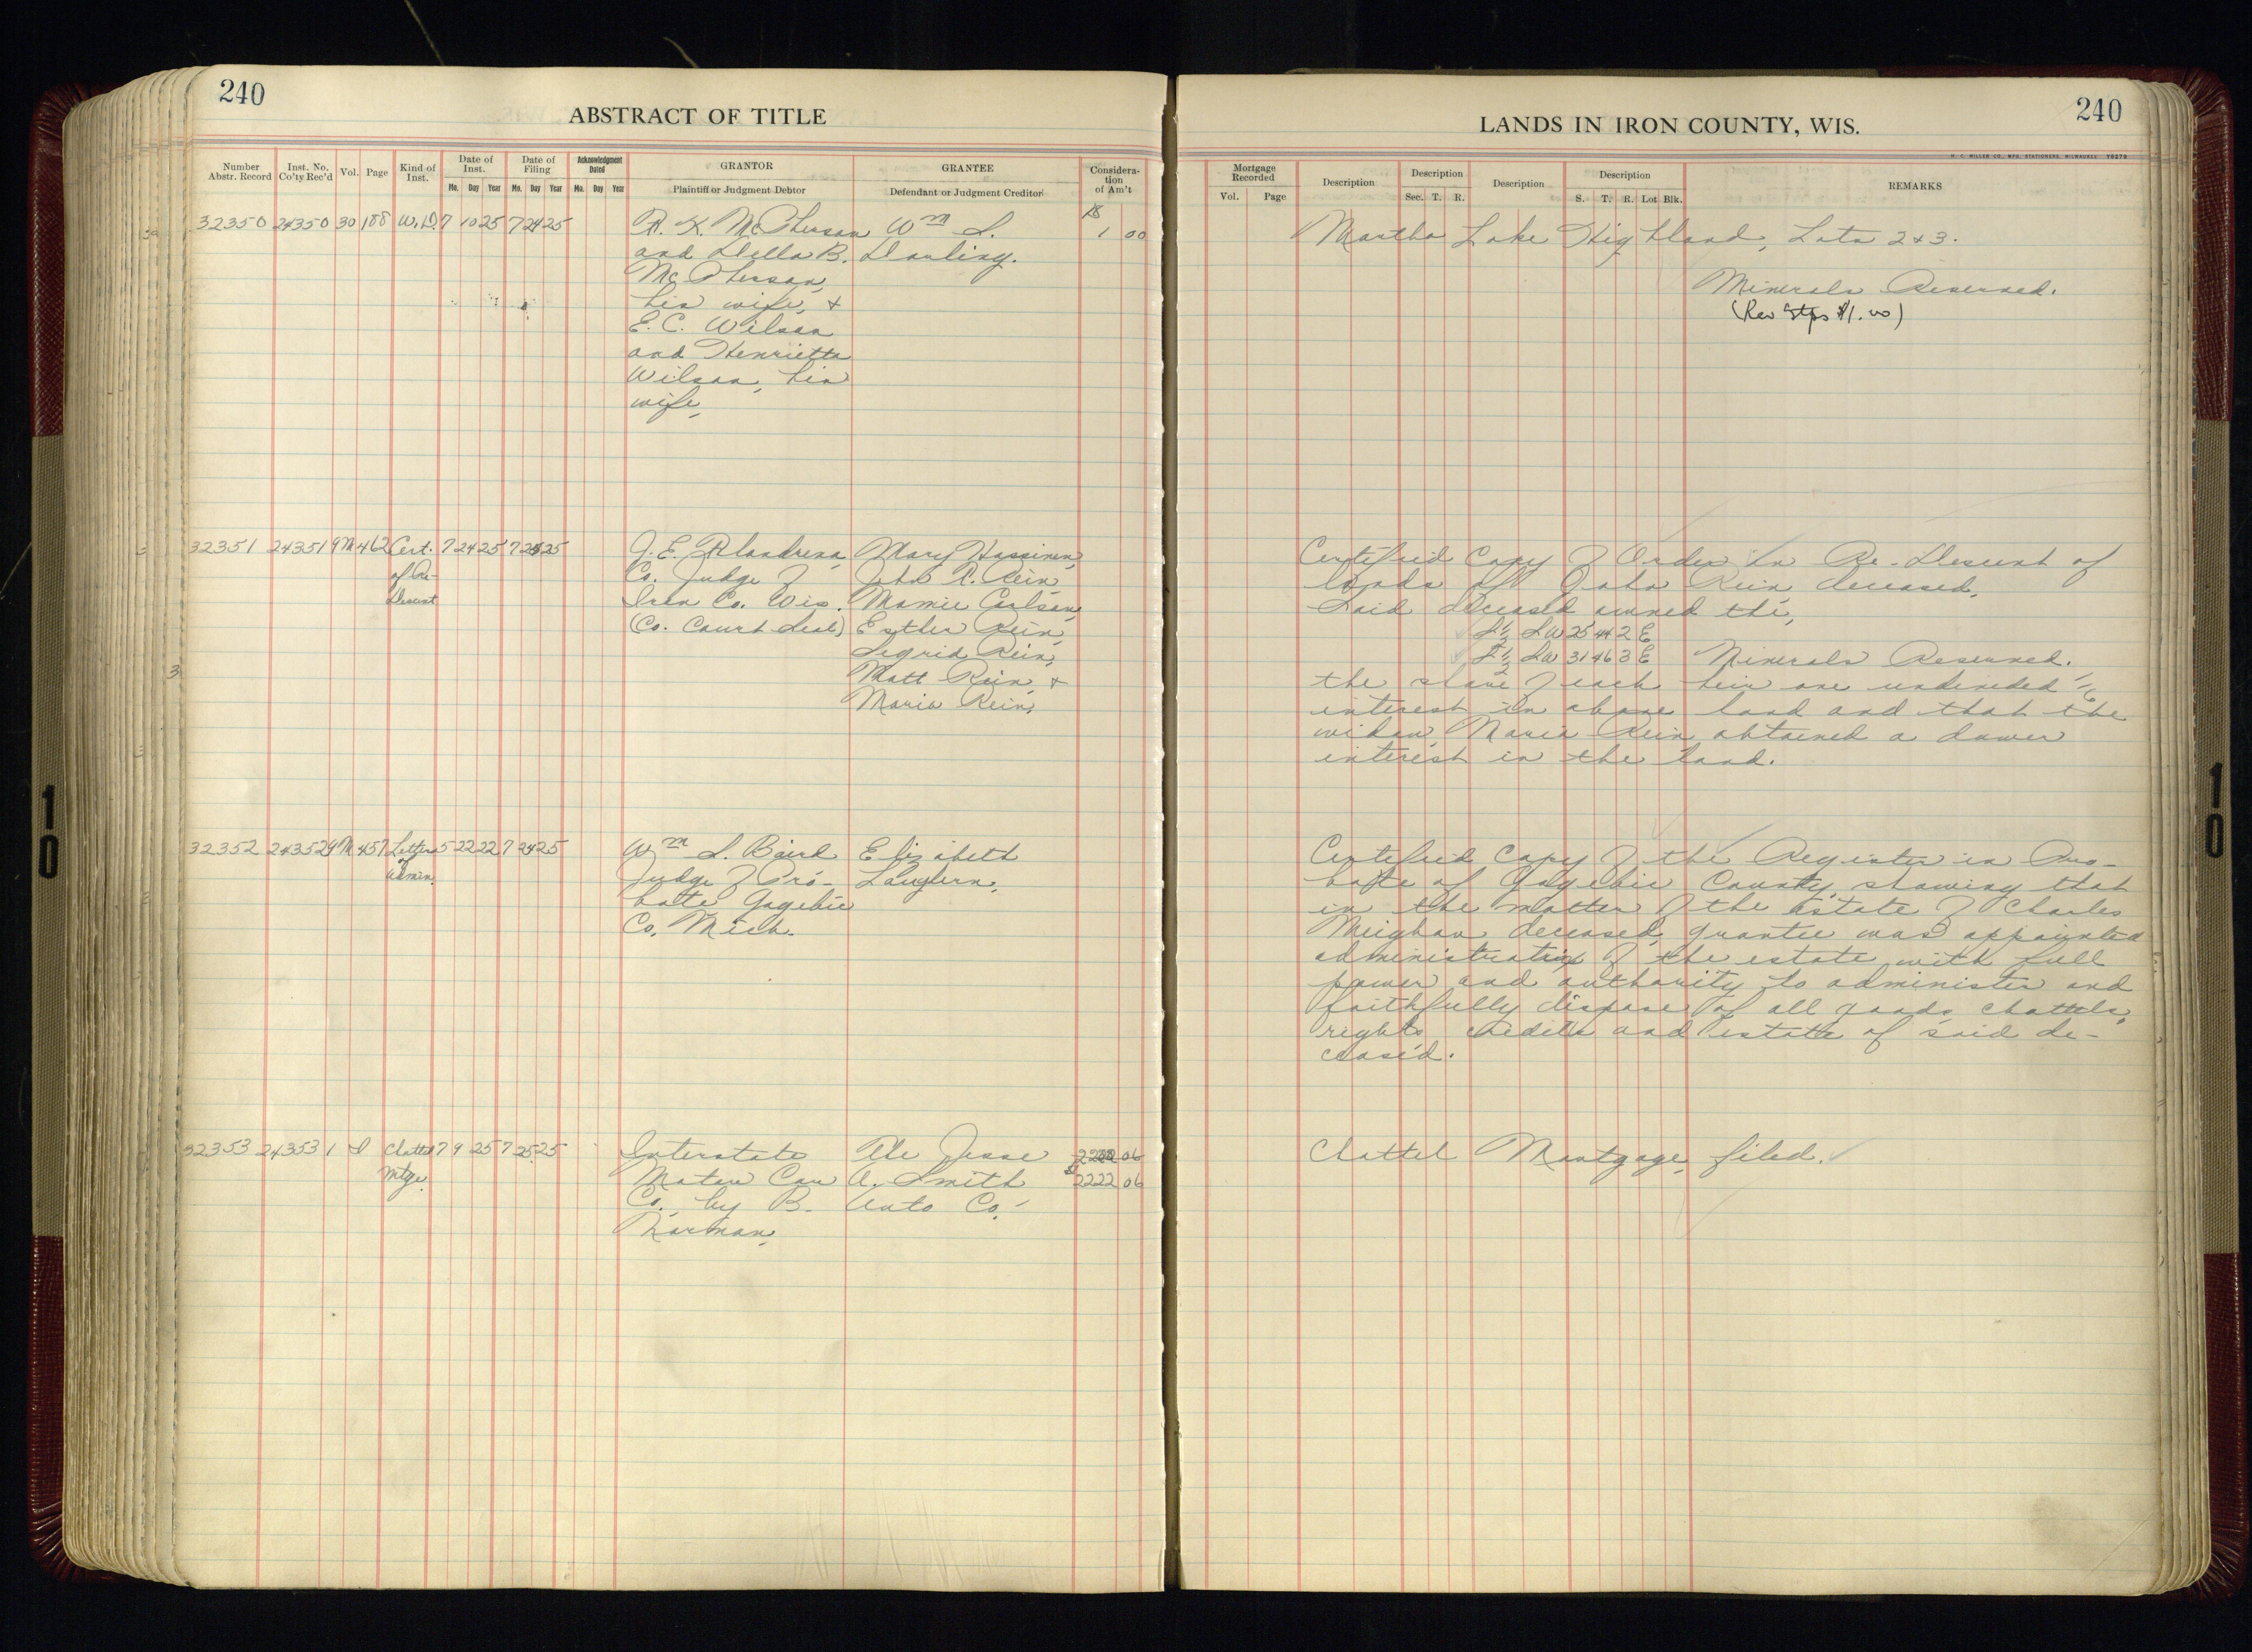 240
ABSTRACT OF TITLE
Number Abstr. Record
Inst. No. Co'ty Rec'd
Vol.
Page
Kind of Inst.
Date of Inst.
Mo. Day Year
Date of Filing
Mo. Day Year
Acknowledgment Dated
Mo. Day Year
GRANTOR
Plaintiff or Judgment Debtor
GRANTEE
Defendant or Judgment Creditor
Considera-
tion
of Am't
32350 24350 30 188 W.D. 7 10 25 7 24 25 R. K. McPherson Wm S. 1 00
and Della B. Darling.
McPherson,
his wife, +
E. C. Wilson
and Henrietta
Wilson, his
wife,
32351 24351 9M 462 Cert. 7 24 25 7 25 25 Mary Hassinen,
of Re- Co. Judge of John R. Rein,
Descent Iron Co. Wis. Mamie Carlson,
(Co. Court Seal) Esther Rein,
Segrid Rein,
Matt Rein, +
Maria Rein,
32352 24352 9M 457 Letters 5 22 22 7 24 25 Wm S. Baird Elizabeth
of Judge of Pro-
Admin. bate Gogebic
Co. Mich.
32353 24353 1 Chattel 7 9 25 7 25 25 Interstate The Jesse 2222 06
Mtge. Motor Car A. Smith $2222 06
Co., by B. Auto Co.
Thorman,
240
LANDS IN IRON COUNTY, WIS.
H. C. MILLER CO., MFG. STATIONERS, MILWAUKEE Y6270
Mortgage Recorded
Vol. Page
Description
Description
Sec. T. R.
Description
Description
S. T. R. Lot Blk.
REMARKS
Martha Lake Highland, Lots 2+3.
Minerals Reserved.
(Rev Stps $1.00)
Certified Copy of Order In Re-Descent of
lands of John Rein, deceased,
Said deceased owned the,
S½ SW 25 44 2 E
SW 31 46 3 E Minerals Reserved.
the share of each heir one undivided 1/6
interest in above land and that the
widow, Maria Rein obtained a dower
interest in the land.
Certified Copy of the Register in Pro-
bate of Gogebic County, showing that
in the matter of the Estate of Charles
Meighan deceased, grantee was appointed
administratrix of the estate with full
power and authority to administer and
faithfully dispose of all goods, chattels,
rights, credits and estate of said de-
ceased.
Chattel Mortgage, filed.